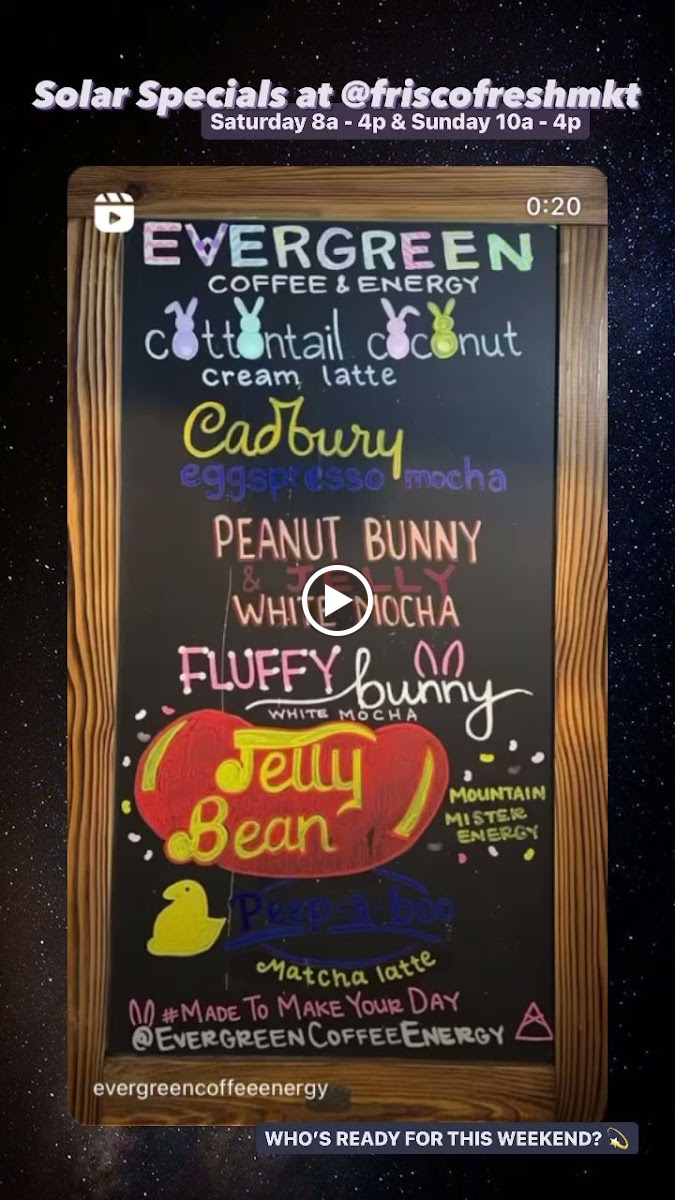 Solar Specials at @friscofreshmkt
Saturday 8a - 4p & Sunday 10a - 4p
0:20
EVERGREEN
COFFEE & ENERGY
cottontail coconut
cream latte
Cadbury
eggspresso mocha
PEANUT BUNNY
& JELLY
WHITE MOCHA
FLUFFY bunny
WHITE MOCHA
Jelly
Bean
MOUNTAIN
MISTER
ENERGY
Peep-a-boo
Matcha latte
#MADE TO MAKE YOUR DAY
@EVERGREENCOFFEEENERGY
evergreencoffeeenergy
WHO'S READY FOR THIS WEEKEND? 💫